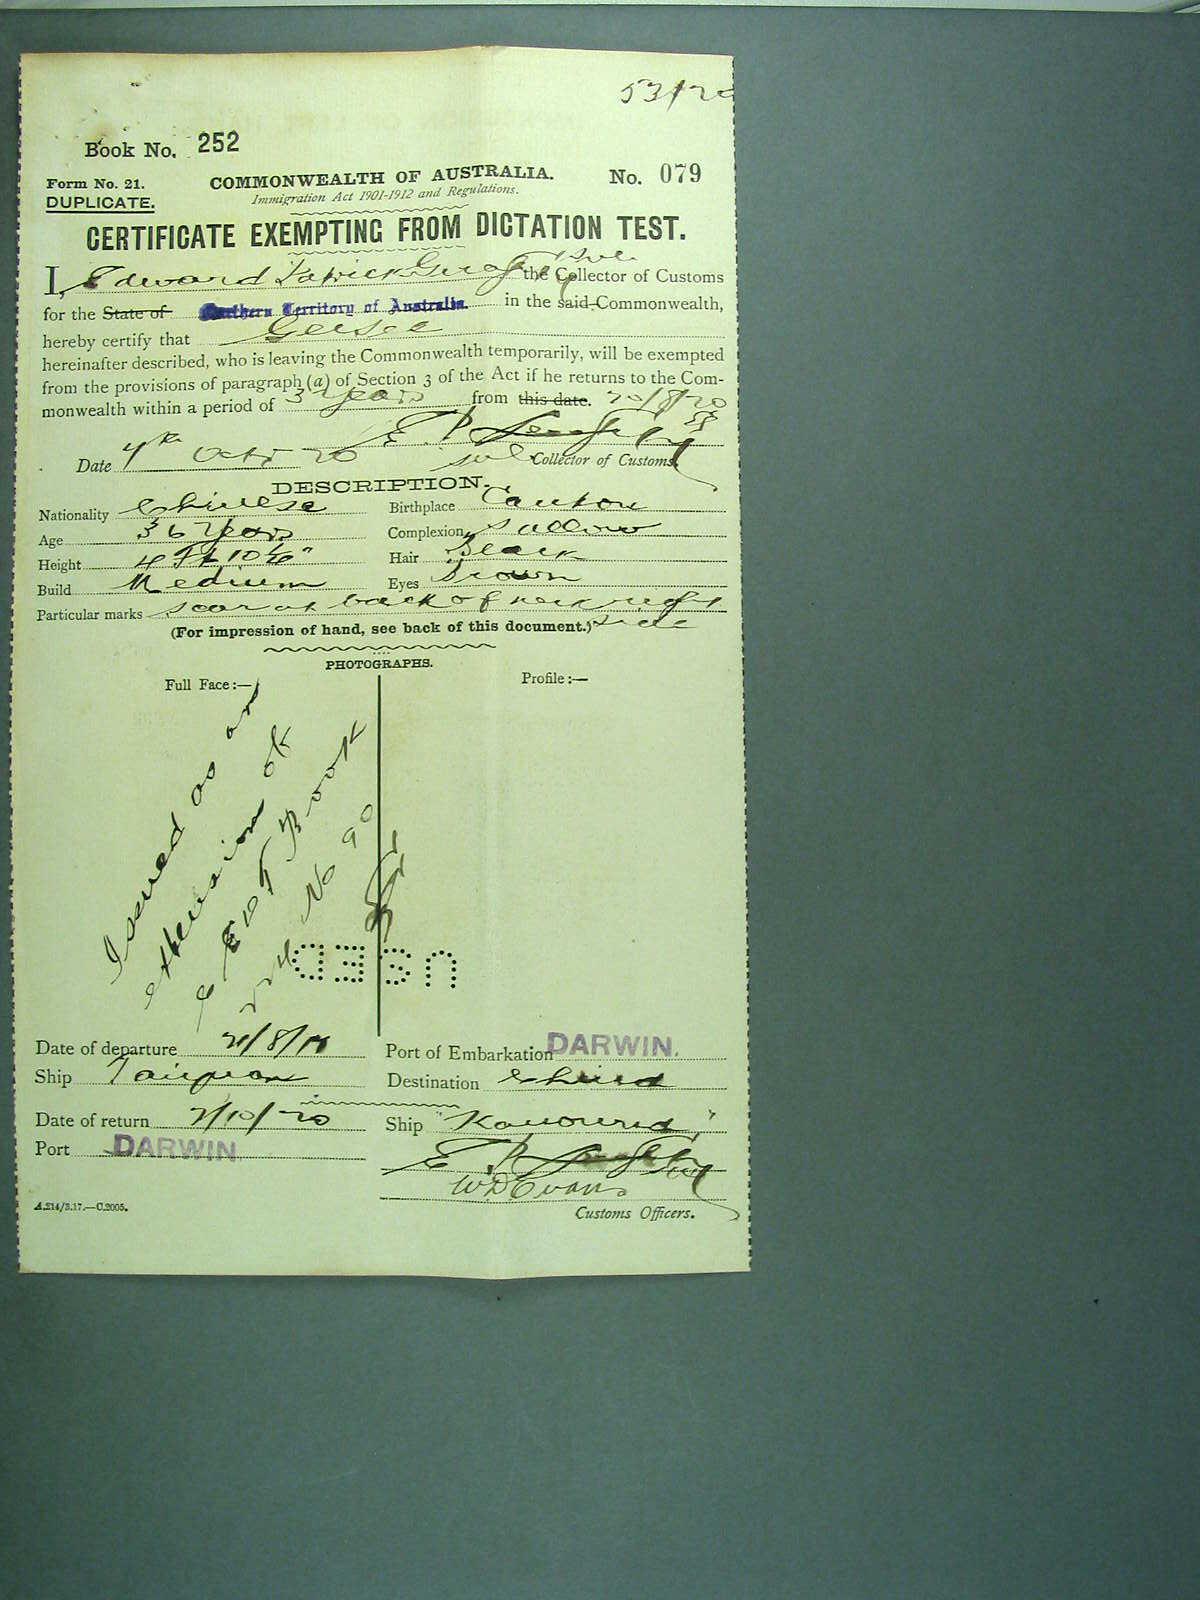 53/20
Book No. 252
Form No. 21. COMMONWEALTH OF AUSTRALIA. No. 079
DUPLICATE. Immigration Act 1901-1912 and Regulations.
CERTIFICATE EXEMPTING FROM DICTATION TEST.
I, Edward the Collector of Customs
for the State of Northern Territory of Australia. in the said Commonwealth,
hereby certify that
hereinafter described, who is leaving the Commonwealth temporarily, will be exempted
from the provisions of paragraph (a) of Section 3 of the Act if he returns to the Com-
monwealth within a period of 3 years from this date. 20/8/20
E P
Date 4th Octr 20 Collector of Customs.
DESCRIPTION.
Nationality Chinese Birthplace Canton
Age 36 Years Complexion Sallow
Height 4 Ft 10 Hair Black
Build Medium Eyes Brown
Particular marks scar at back of neck right
(For impression of hand, see back of this document.) side
PHOTOGRAPHS.
Full Face:— Profile:—
Issued as an
extension of
C E D T Book
No 90
USED
Date of departure Port of Embarkation DARWIN.
Ship Taiyuan Destination China
Date of return 2/10/20 Ship
Port DARWIN E. P.
W D Evans
A.214/3.17.—C.2005. Customs Officers.